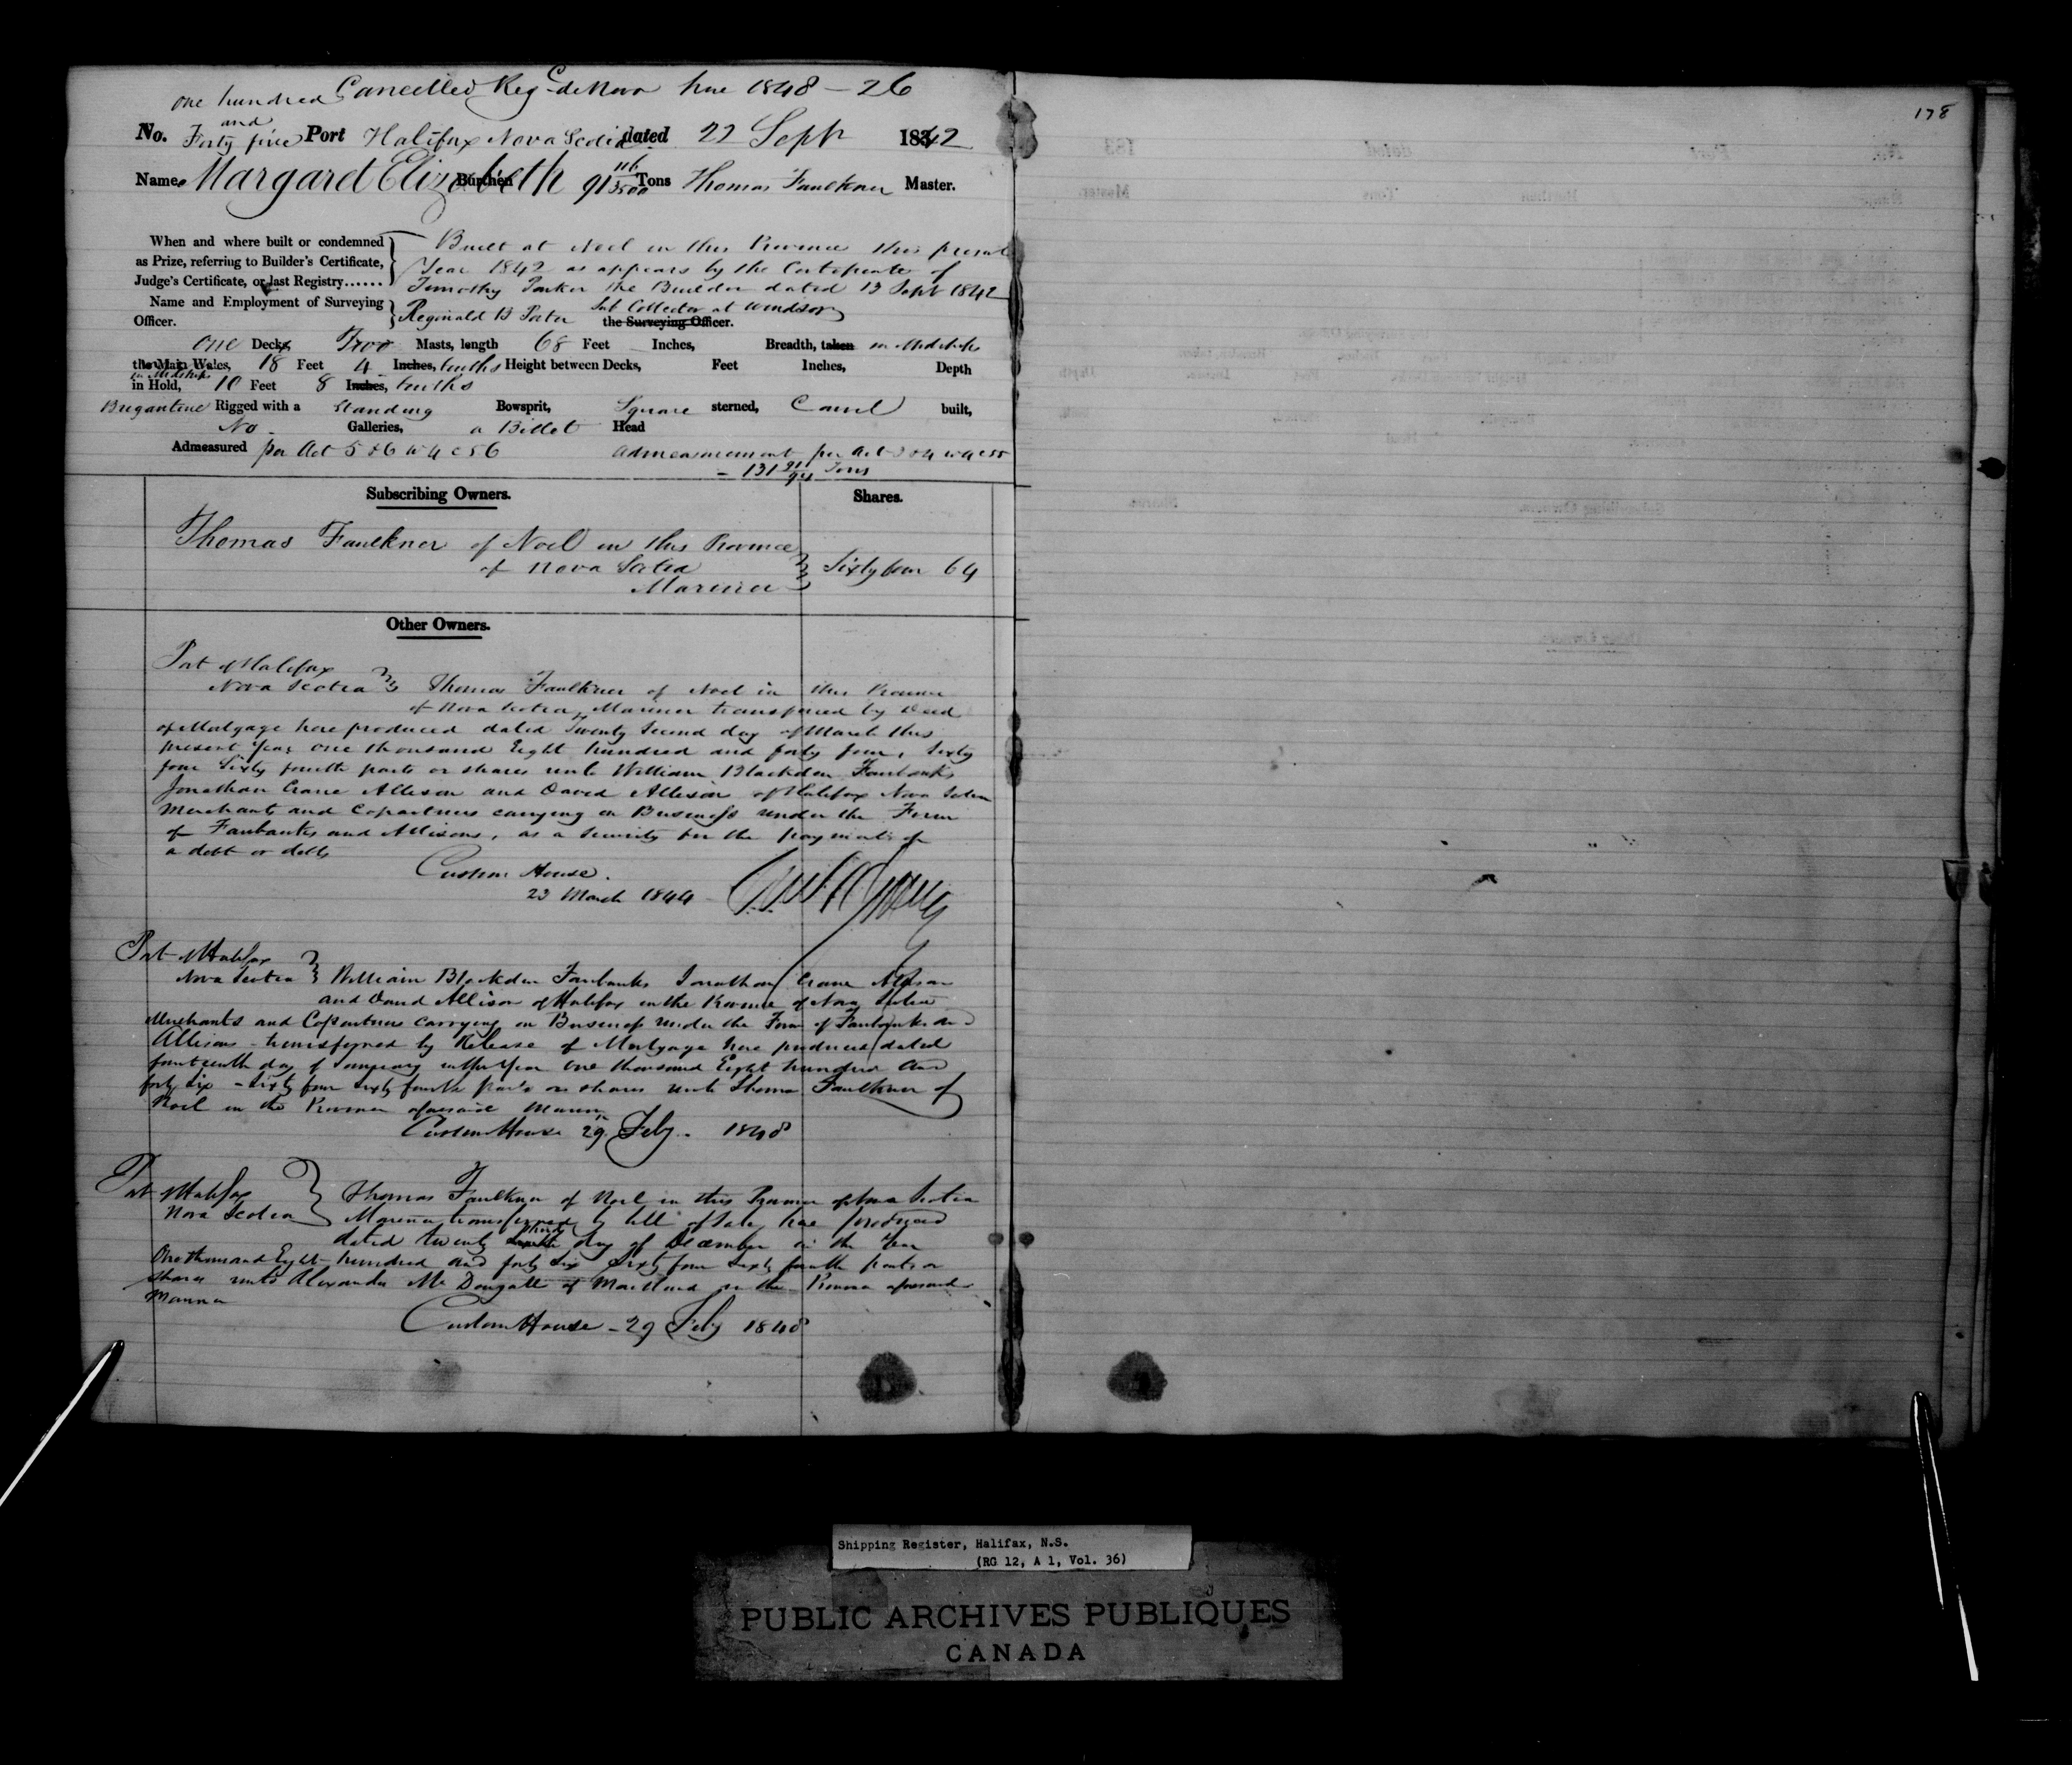 Cancelled Reg de Novo here 1848 - 26
one hundred
and
No. Forty five Port Halifax Nova Scotia dated 22 Sept 1842
Name Margaret Elizabeth Burthen 91 116/3500 Tons Thomas Faulkner Master.
178
When and where built or condemned
as Prize, referring to Builder's Certificate,
Judge's Certificate, or last Registry......
Built at Noel in this Province this present
Year 1842 as appears by the Certificate of
Timothy Parker the Builder dated 13 Sept 1842
Name and Employment of Surveying
Officer.
Reginald B Porter Sub Collector at Windsor
the Surveying Officer.
One Decks, Two Masts, length 68 Feet Inches, Breadth, taken in Midships
the Main Wales, 18 Feet 4 Inches, tenths Height between Decks, Feet Inches, Depth
in Midships
in Hold, 10 Feet 8 Inches, tenths
Brigantine Rigged with a Standing Bowsprit, Square sterned, Carvel built,
No Galleries, a Billet Head
Admeasured per Act 5 & 6 W 4 c 56 admeasurement per act 3 & 4 W 4 c 55
= 131 21/94 Tons
Subscribing Owners. Shares.
Thomas Faulkner of Noel in this Province
of Nova Scotia
Mariner
Sixty four 64
Other Owners.
Port of Halifax
Nova Scotia Thomas Faulkner of Noel in this Province
of Nova Scotia, Mariner transferred by Deed
of Mortgage here produced dated Twenty Second day of March this
present Year One thousand Eight hundred and forty four, Sixty
four Sixty fourth parts or shares unto William Blackden Fairbanks
Jonathan Crane Allison and David Allison of Halifax Nova Scotia
Merchants and Copartners carrying on Business under the Firm
of Fairbanks and Allisons, as a security for the payment of
a debt or debts
Custom House.
23 March 1844
Port of Halifax
Nova Scotia William Blackden Fairbanks Jonathan Crane Allison
and David Allison of Halifax in the Province of Nova Scotia
Merchants and Copartners carrying on Business under the Firm of Fairbanks and
Allisons transferred by Release of Mortgage here produced dated
fourteenth day of January in the Year One thousand Eight hundred and
forty six - Sixty four Sixty fourth parts or shares unto Thomas Faulkner of
Noel in the Province aforesaid Mariner
Custom House 29 Feby. 1848
Port of Halifax
Nova Scotia Thomas Faulkner of Noel in this Province of Nova Scotia
Mariner transferred by bill of Sale here produced
third
dated twenty day of December in the Year
One thousand Eight hundred and forty six Sixty four Sixty fourth parts or
shares unto Alexander Mc Dougall of Maitland in the Province aforesaid
Mariner
Custom House - 29 Feby 1848
Shipping Register, Halifax, N.S.
(RG 12, A 1, Vol. 36)
PUBLIC ARCHIVES PUBLIQUES
CANADA